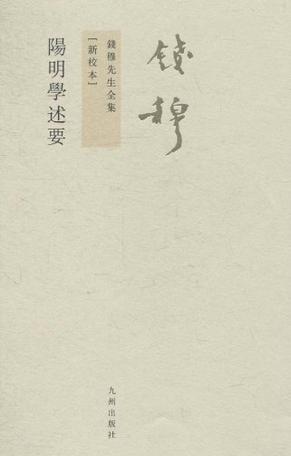 錢穆
錢穆先生全集
［新校本］
陽明學述要
九州出版社